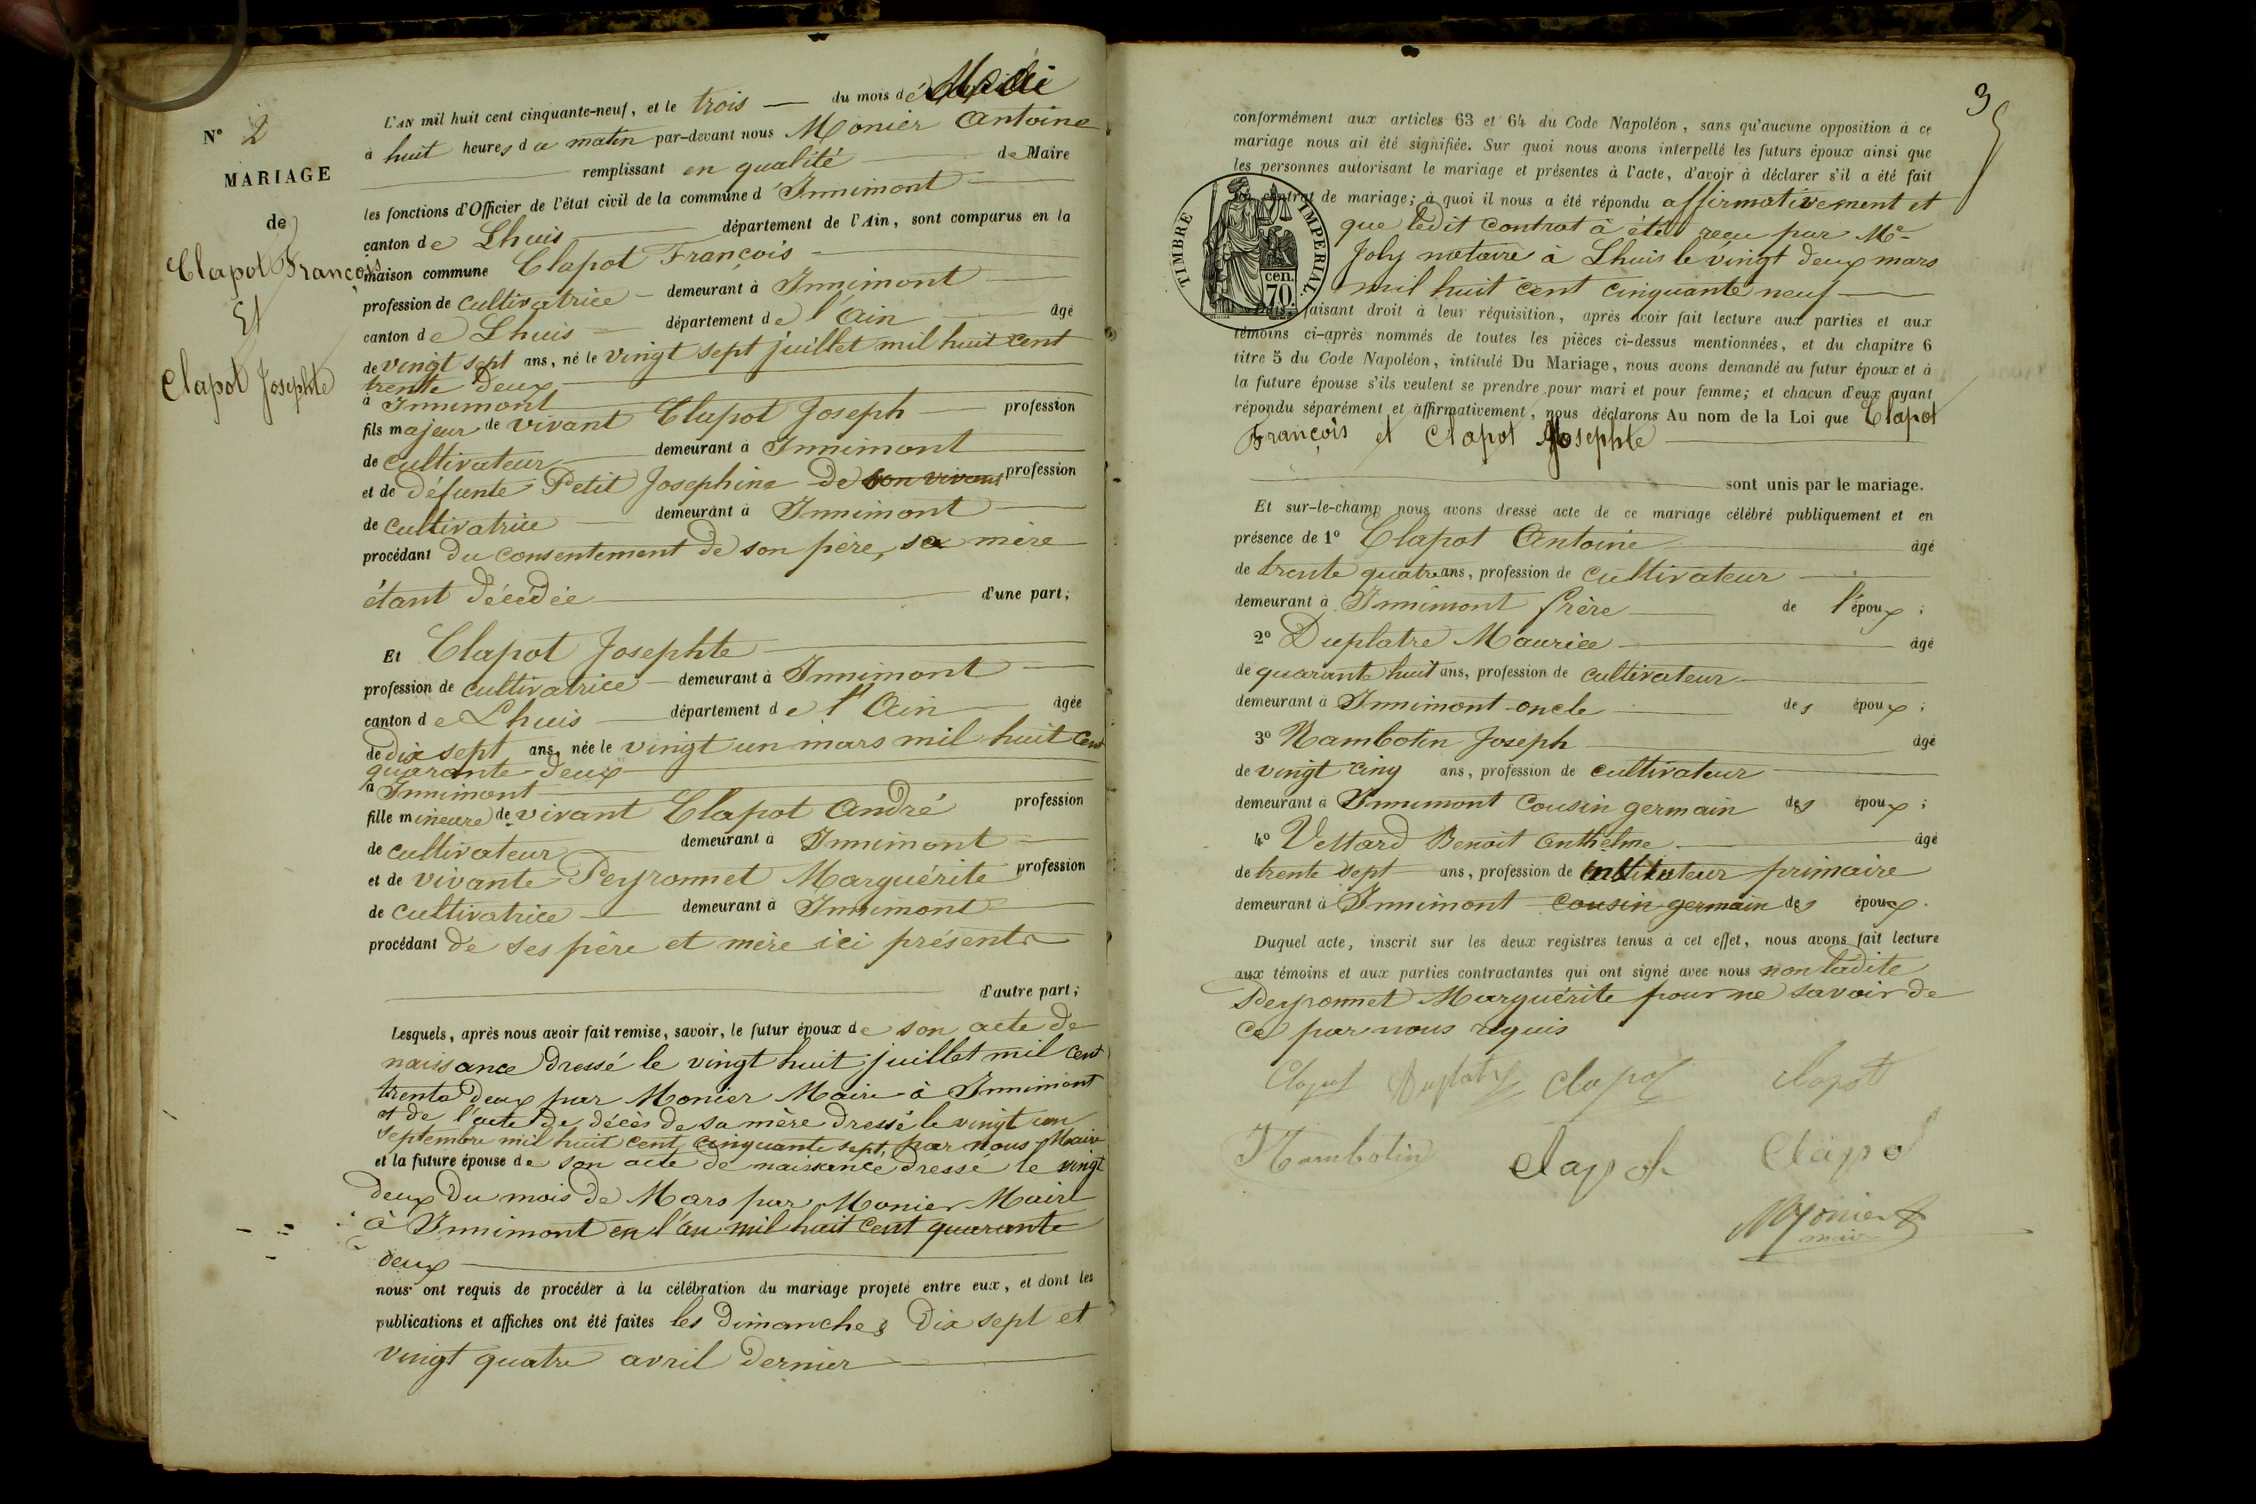 N° 2
MARIAGE
de
Clapot François
Et
Clapot Josephte
L'AN mil huit cent cinquante-neuf, et le trois du mois de Mai
à huit heures du matin par-devant nous Monier Antoine
remplissant en qualité de Maire
les fonctions d'Officier de l'état civil de la commune d'Innimont
canton de Lhuis département de l'Ain, sont comparus en la
maison commune Clapot François
profession de cultivatrice demeurant à Innimont
canton de Lhuis département de l'Ain âgé
de vingt sept ans, né le vingt sept juillet mil huit cent
trente deux
à Innimont
fils majeur de vivant Clapot Joseph profession
de cultivateur demeurant à Innimont
et de défunte Petit Josephine de son vivant profession
de cultivatrice demeurant à Innimont
procédant du consentement de son père, sa mère
étant décédée d'une part;
Et Clapot Josephte
profession de cultivatrice demeurant à Innimont
canton de Lhuis département de l'Ain âgée
de dix sept ans, née le vingt un mars mil huit cent
quarante deux
à Innimont
fille mineure de vivant Clapot André profession
de cultivateur demeurant à Innimont
et de vivante Peyronnet Marguérite profession
de cultivatrice demeurant à Innimont
procédant de ses père et mère ici présents
d'autre part;
Lesquels, après nous avoir fait remise, savoir, le futur époux de son acte de
naissance dressé le vingt huit juillet mil cent
trente deux par Monier Maire à Innimont
et de l'acte de décès de sa mère dressé le vingt un
septembre mil huit cent cinquante sept par nous Maire
et la future épouse de son acte de naissance dressé le vingt
deux du mois de Mars par Monier Maire
à Innimont en l'an mil huit cent quarante
deux
nous ont requis de procéder à la célébration du mariage projeté entre eux, et dont les
publications et affiches ont été faites les dimanches dix sept et
vingt quatre avril dernier
3
conformément aux articles 63 et 64 du Code Napoléon, sans qu'aucune opposition à ce
mariage nous ait été signifiée. Sur quoi nous avons interpellé les futurs époux ainsi que
les personnes autorisant le mariage et présentes à l'acte, d'avoir à déclarer s'il a été fait
contrat de mariage; à quoi il nous a été répondu affirmativement et
que ledit contrat à été reçu par Me
Joly notaire à Lhuis le vingt deux mars
mil huit cent cinquante neuf
TIMBRE IMPERIAL.
cen.
70.
faisant droit à leur réquisition, après avoir fait lecture aux parties et aux
témoins ci-après nommés de toutes les pièces ci-dessus mentionnées, et du chapitre 6
titre 5 du Code Napoléon, intitulé Du Mariage, nous avons demandé au futur époux et à
la future épouse s'ils veulent se prendre pour mari et pour femme; et chacun d'eux ayant
répondu séparément et affirmativement, nous déclarons Au nom de la Loi que Clapot
François et Clapot Josephte
sont unis par le mariage.
Et sur-le-champ nous avons dressé acte de ce mariage célébré publiquement et en
présence de 1° Clapot Antoine âgé
de trente quatre ans, profession de cultivateur
demeurant à Innimont frère de l'époux;
2° Duplatre Maurice âgé
de quarante huit ans, profession de cultivateur
demeurant à Innimont oncle des époux;
3° Rambotin Joseph âgé
de vingt cinq ans, profession de cultivateur
demeurant à Innimont cousin germain des époux;
4° Vettard Benoit Anthelme âgé
de trente sept ans, profession de instituteur primaire
demeurant à Innimont cousin germain des époux.
Duquel acte, inscrit sur les deux registres tenus à cet effet, nous avons fait lecture
aux témoins et aux parties contractantes qui ont signé avec nous non ladite
Peyronnet Marguérite pour ne savoir de
ce par nous requis
Clapot Duplatre Clapot Clapot
Rambotin Clapot Clapot
Monier
maire